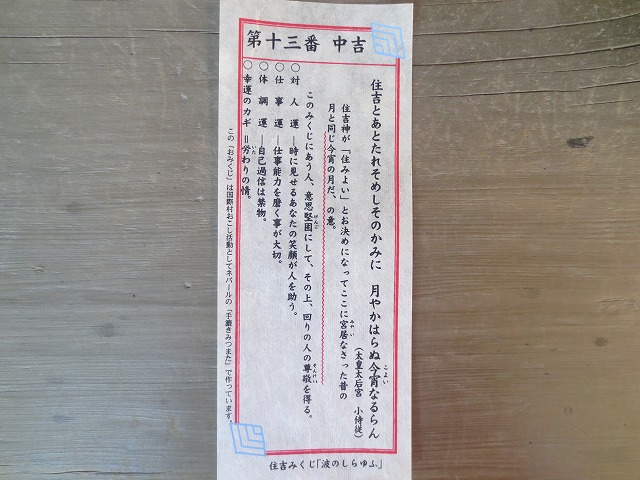 第十三番 中吉
住吉とあとたれそめしそのかみに 月やかはらぬ今宵なるらん
こよい
(太皇太后宮 小侍従)
住吉神が「住みよい」とお決めになってここに宮居なさった昔の
みやい
月と同じ今宵の月だ、の意。
このみくじにあう人、意思堅固にして、その上、回りの人の尊敬を得る。
けんご
そんけい
○対人運―時に見せるあなたの笑顔が人を助う。
○仕事運―仕事能力を磨く事が大切。
○体調運―自己過信は禁物。
○幸運のカギ=労わりの情。
いた
この「おみくじ」は国際村おこし活動としてネパールの「手漉きみつまた」で作っています。
住吉みくじ「波のしらゆふ」